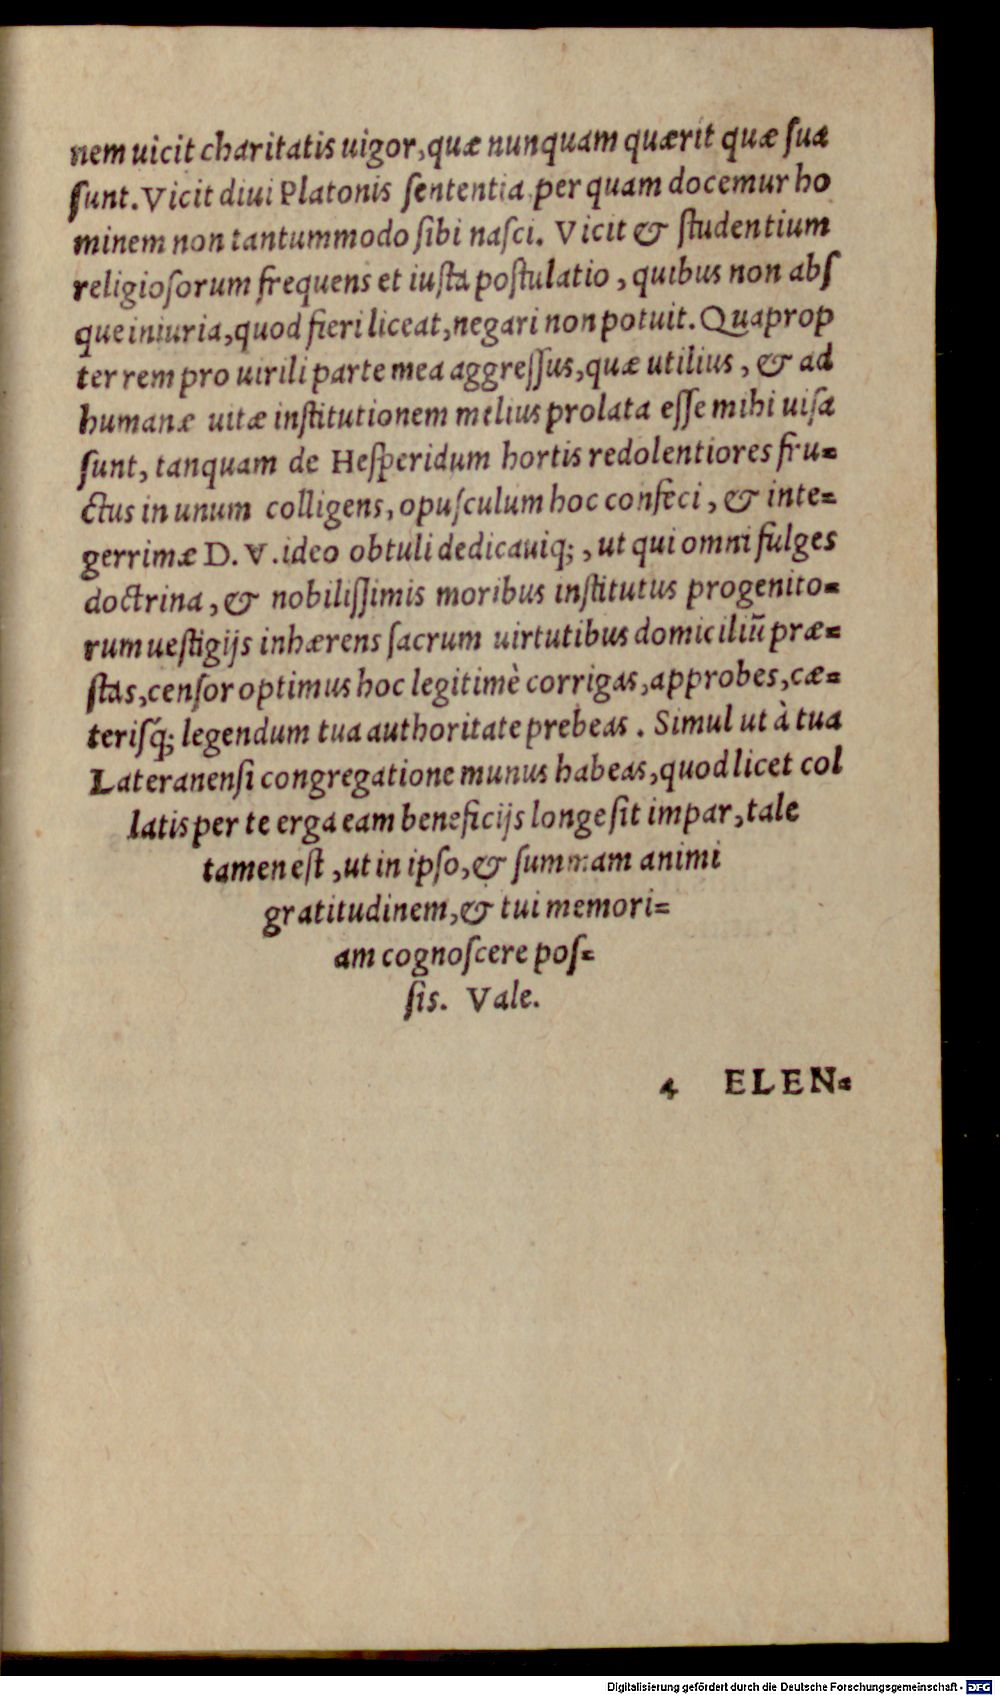 nem uicit charitatis uigor, quæ nunquam quærit quæ ſua
ſunt. Vicit diui Platonis ſententia per quam docemur ho
minem non tantummodo ſibi naſci. Vicit & ſtudentium
religioſorum frequens et iuſta poſtulatio, quibus non abſ
que iniuria, quod fieri liceat, negari non potuit. Quaprop
ter rem pro uirili parte mea aggreſſus, quæ utilius, & ad
humanæ uitæ inſtitutionem melius prolata eſſe mihi uiſa
ſunt, tanquam de Heſperidum hortis redolentiores fru-
ctus in unum colligens, opuſculum hoc confeci, & inte-
gerrimæ D. V. ideo obtuli dedicauiq;, ut qui omni fulges
doctrina, & nobiliſſimis moribus inſtitutus progenito-
rum ueſtigijs inhærens ſacrum uirtutibus domiciliũ præ-
ſtas, cenſor optimus hoc legitimè corrigas, approbes, cæ-
teriſq́; legendum tua authoritate prebeas. Simul ut à tua
Lateranenſi congregatione munus habeas, quod licet col
latis per te erga eam beneficijs longe ſit impar, tale
tamen eſt, ut in ipſo, & ſummam animi
gratitudinem, & tui memori-
am cognoſcere poſ-
ſis. Vale.
4 ELEN-
Digitalisierung gefördert durch die Deutsche Forschungsgemeinschaft - DFG